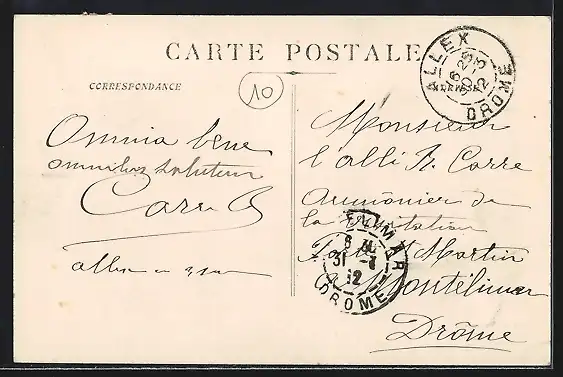 CARTE POSTALE
CORRESPONDANCE
10
ALLEX
DROME
Omnia bene
omnibus salutem
Carre
Monsieur
l'abbé Carre
aumônier de
la Visitation
St Martin
Montélimar
Drôme
MONTELIMAR
31
12
DROME